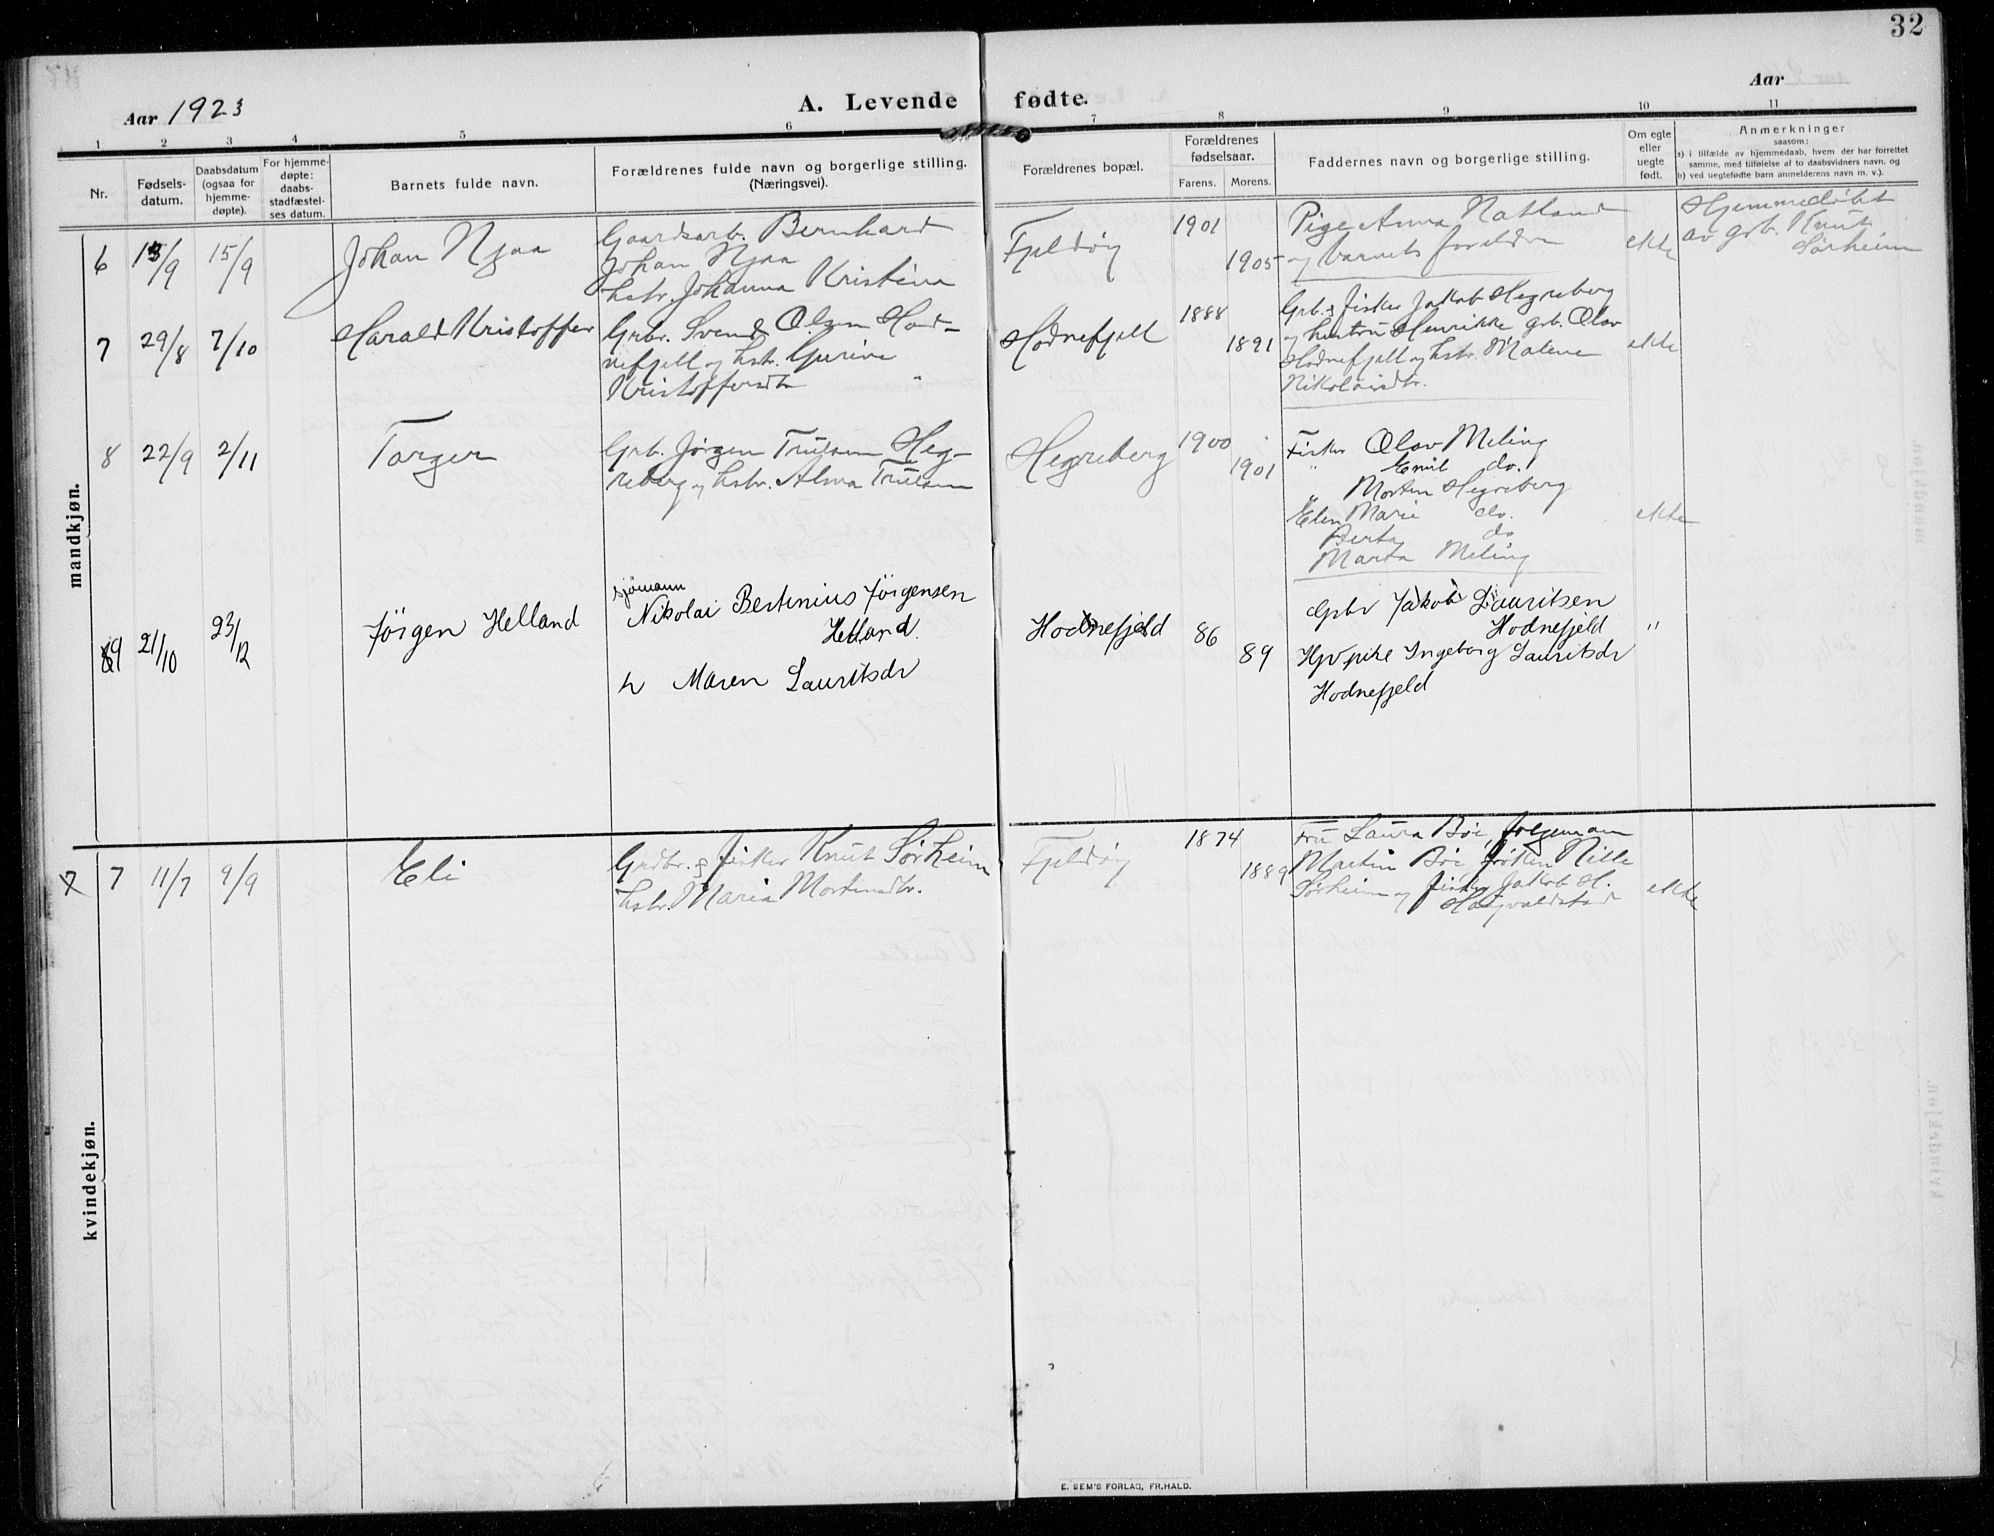 32
Aar 1923
A. Levende fødte.
Aar
1 2 3 4 5 6 7 8 9 10 11
Nr.
Fødsels-
datum.
Daabsdatum
(ogsaa for
hjemme-
døpte).
For hjemme-
døpte:
daabs-
stadfæstel-
ses datum.
Barnets fulde navn.
Forældrenes fulde navn og borgerlige stilling.
(Næringsvei).
Forældrenes bopæl.
Forældrenes
fødselsaar.
Farens. Morens.
Faddernes navn og borgerlige stilling.
Om egte
eller
uegte
født.
Anmerkninger
saasom:
a) i tilfælde av hjemmedaab, hvem der har forrettet
samme, med tilføielse af to daabsvidners navn, og
b) ved uegtefødte barn anmelderens navn m. v.).
mandkjøn.
6 13/9 15/9
Johan Njaa
Gaardsarb. Bernhard
Johan Njaa
hstr. Johanna Kristina
Fjeldøy
1901
1905
Pige Anna Natland
og barnets foreldre
ekte
Hjemmedøbt
av grb. Knut
Sørheim
7 29/8 7/10
Harald Kristoffer
Grb. Svend Olsen Hod-
nefjell og hstr. Gurine
Kristoffersdtr
Hodnefjell
1888
1891
Grb. & fisker Jakob Hegreberg
og hustru Henrikke grb. Olav
Hodnefjell og hstr. Malene
Nikolaisdtr.
ekte
8 22/9 2/11
Torger
Grb. Jørgen Trulsen Heg-
reberg og hstr. Alma Trulsen
Hegreberg
1900
1901
Fisker Olav Meling
" Emil do.
" Morten Hegreberg
Elen Marie do.
Berta do
Marta Meling
ekte
9 21/10 23/12
Jørgen Helland
sjømann
Nikolai Bertinius Jørgensen
Helland.
h Maren Lauritsdr
Hodnefjeld
86
89
Gpbr Jakob Lauritsen
Hodnefjeld
Hpv pike Ingeborg Lauritsdr
Hodnefjeld
"
kvindekjøn.
7 7 11/7 9/9
Eli
Grdbr. & fisker Knut Sørheim
hstr. Maria Mortensdtr.
Fjeldøy
1874
1889
Fru Laura Bøe,
Martin Bøe frøken Nille
Sørheim og fisker Jakob H.
Haugvaldstad
ekte
E. SEM'S FORLAG, FR.HALD.